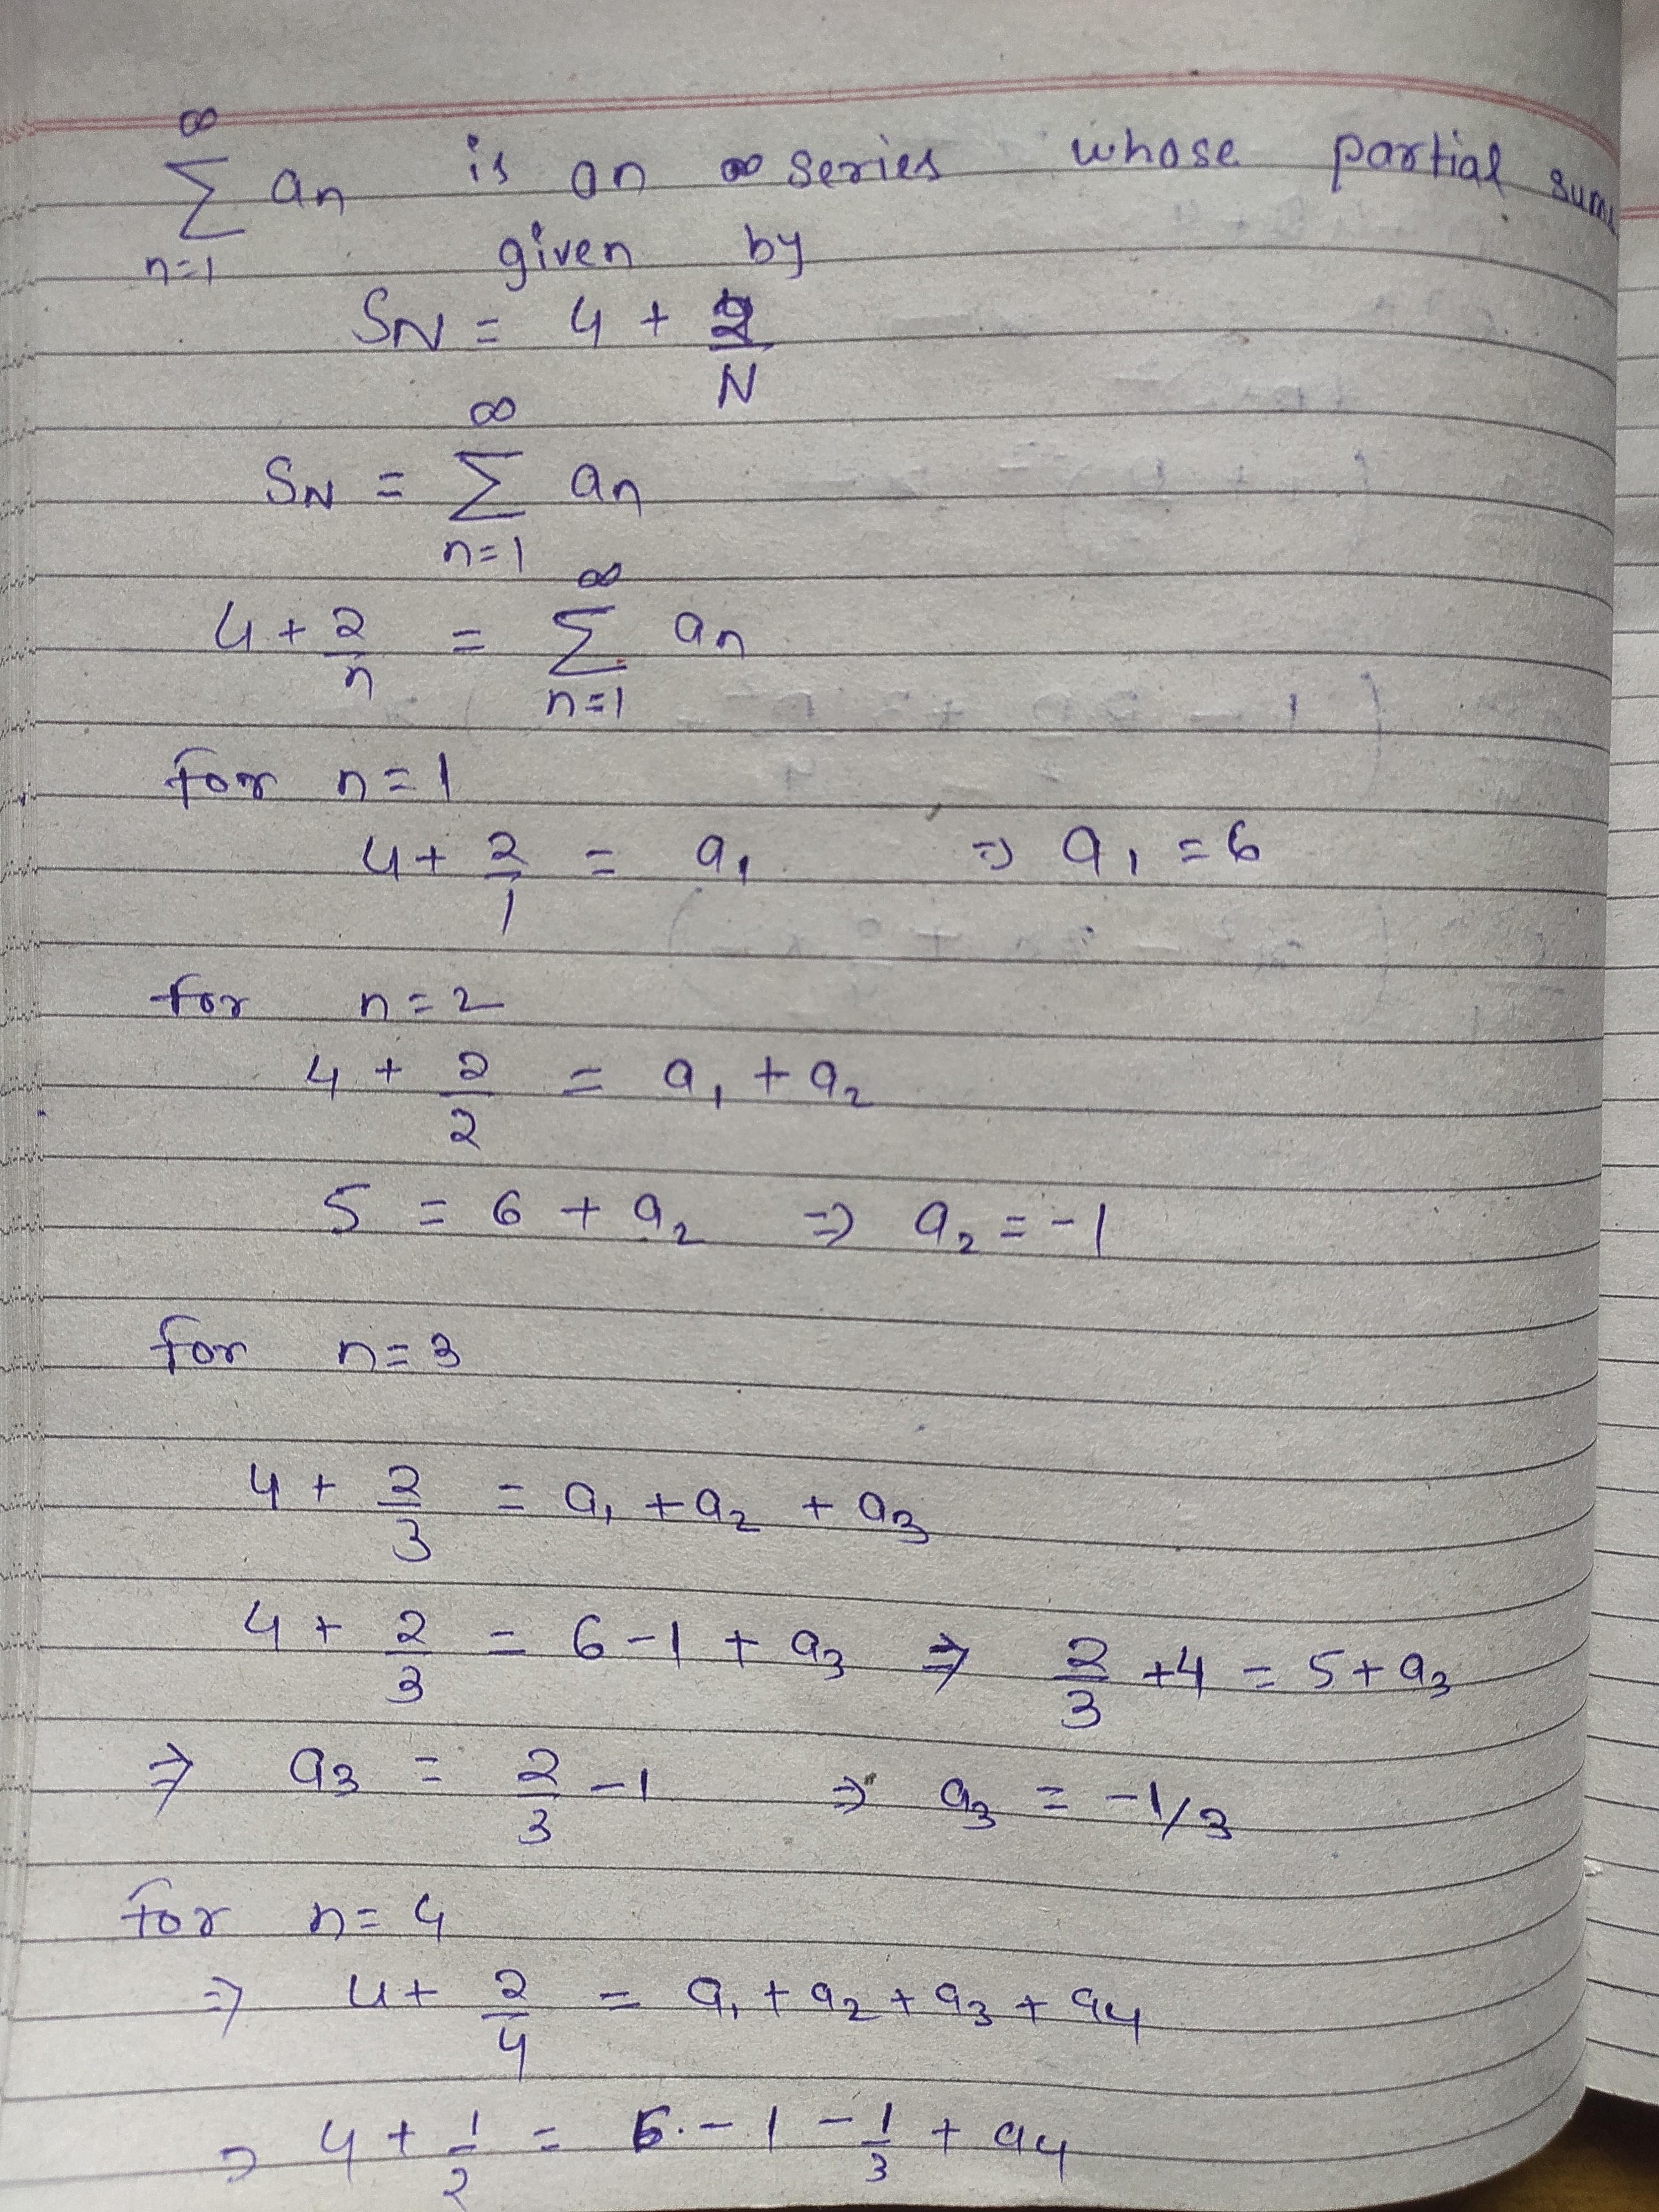 ∞
∑ an is an ∞ series whose partial sums
n=1 given by
SN = 4 + 2/N
∞
SN = ∑ an
n=1
∞
4 + 2/n = ∑ an
n=1
for n=1
4 + 2/1 = a1 => a1 = 6
for n=2
4 + 2/2 = a1 + a2
5 = 6 + a2 => a2 = -1
for n=3
4 + 2/3 = a1 + a2 + a3
4 + 2/3 = 6 - 1 + a3 => 2/3 + 4 = 5 + a3
=> a3 = 2/3 - 1 => a3 = -1/3
for n=4
=> 4 + 2/4 = a1 + a2 + a3 + a4
=> 4 + 1/2 = 6 - 1 - 1/3 + a4